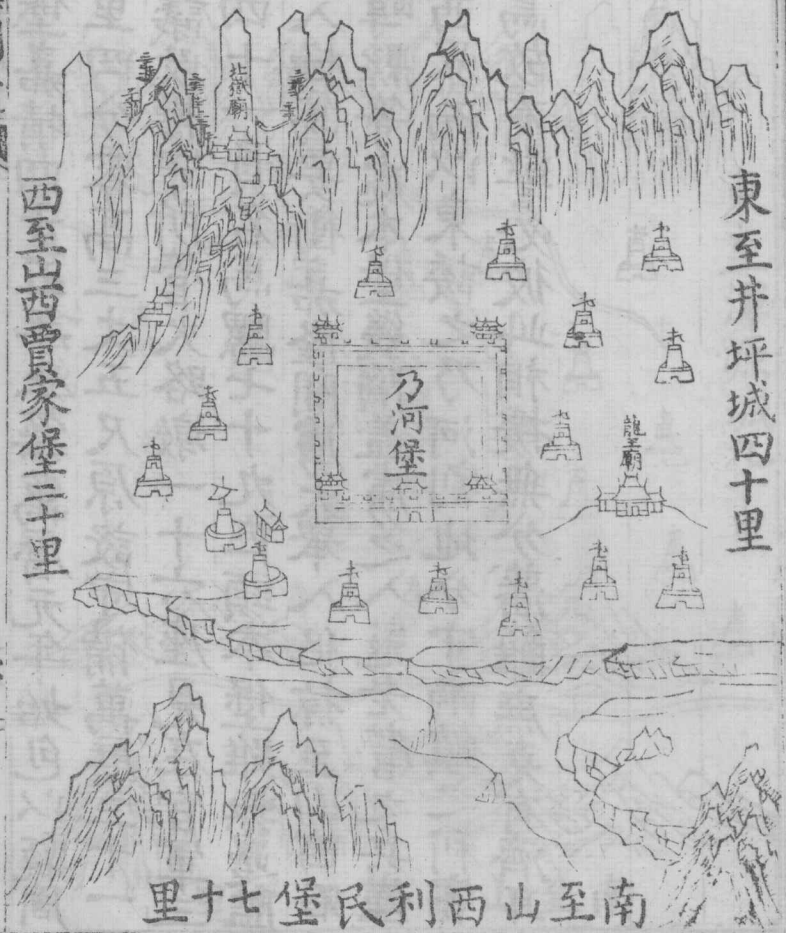 東至井坪城四十里
龍王廟
乃河堡
西至山西賈家堡二十里
南至山西利民堡七十里